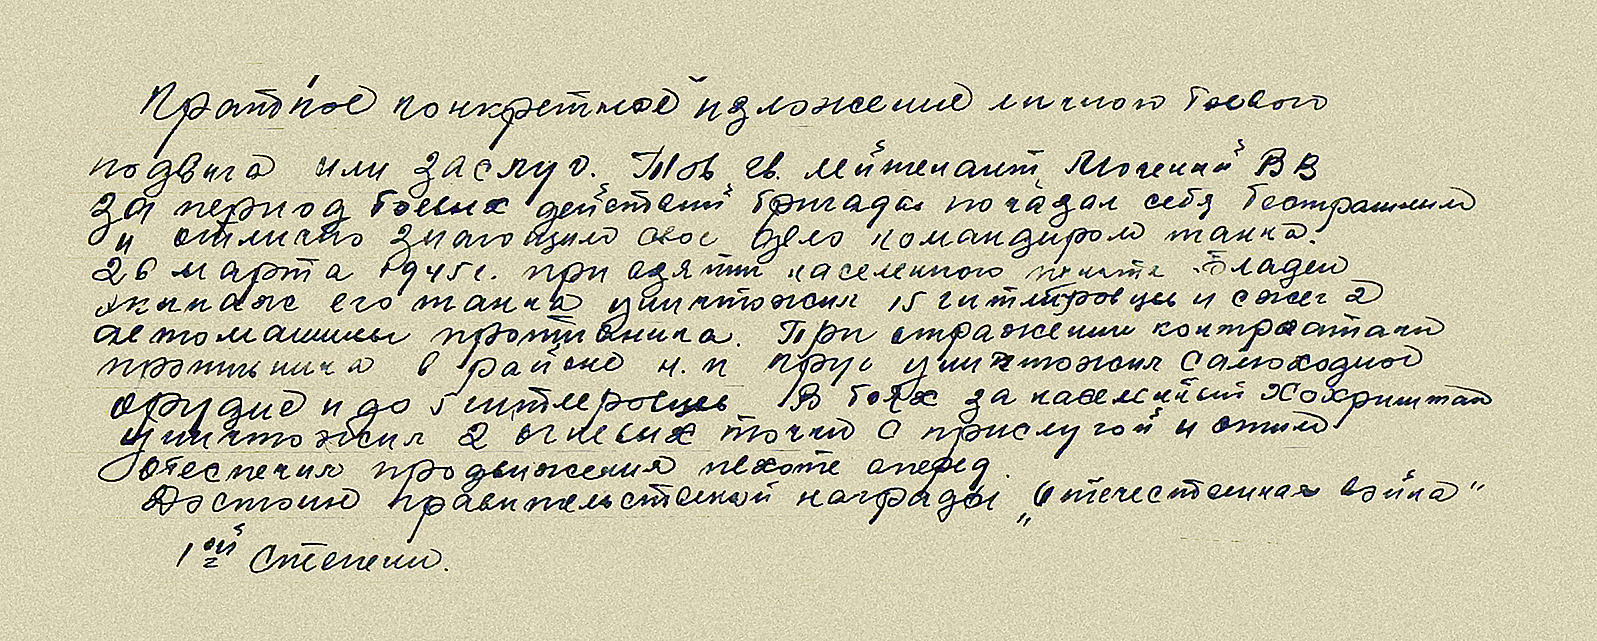 Краткое конкретное изложение личного боевого
подвига или заслуг. Тов гв. лейтенант В В
За период боевых действий бригады показал себя бесстрашным
и отлично знающим свое дело командиром танка.
26 марта 1945г. при взятии населенного пункта
экипаж его танка уничтожил 15 гитлеровцев и сжег 2
автомашины противника. При отражении контратаки
противника в районе н. п уничтожил самоходное
орудие и до 5 гитлеровцев В боях за населенный
уничтожил 2 огневых точки с прислугой и этим
обеспечил продвижения пехоте вперед.
Достоин правительственной награды „Отечественная война"
1ой степени.